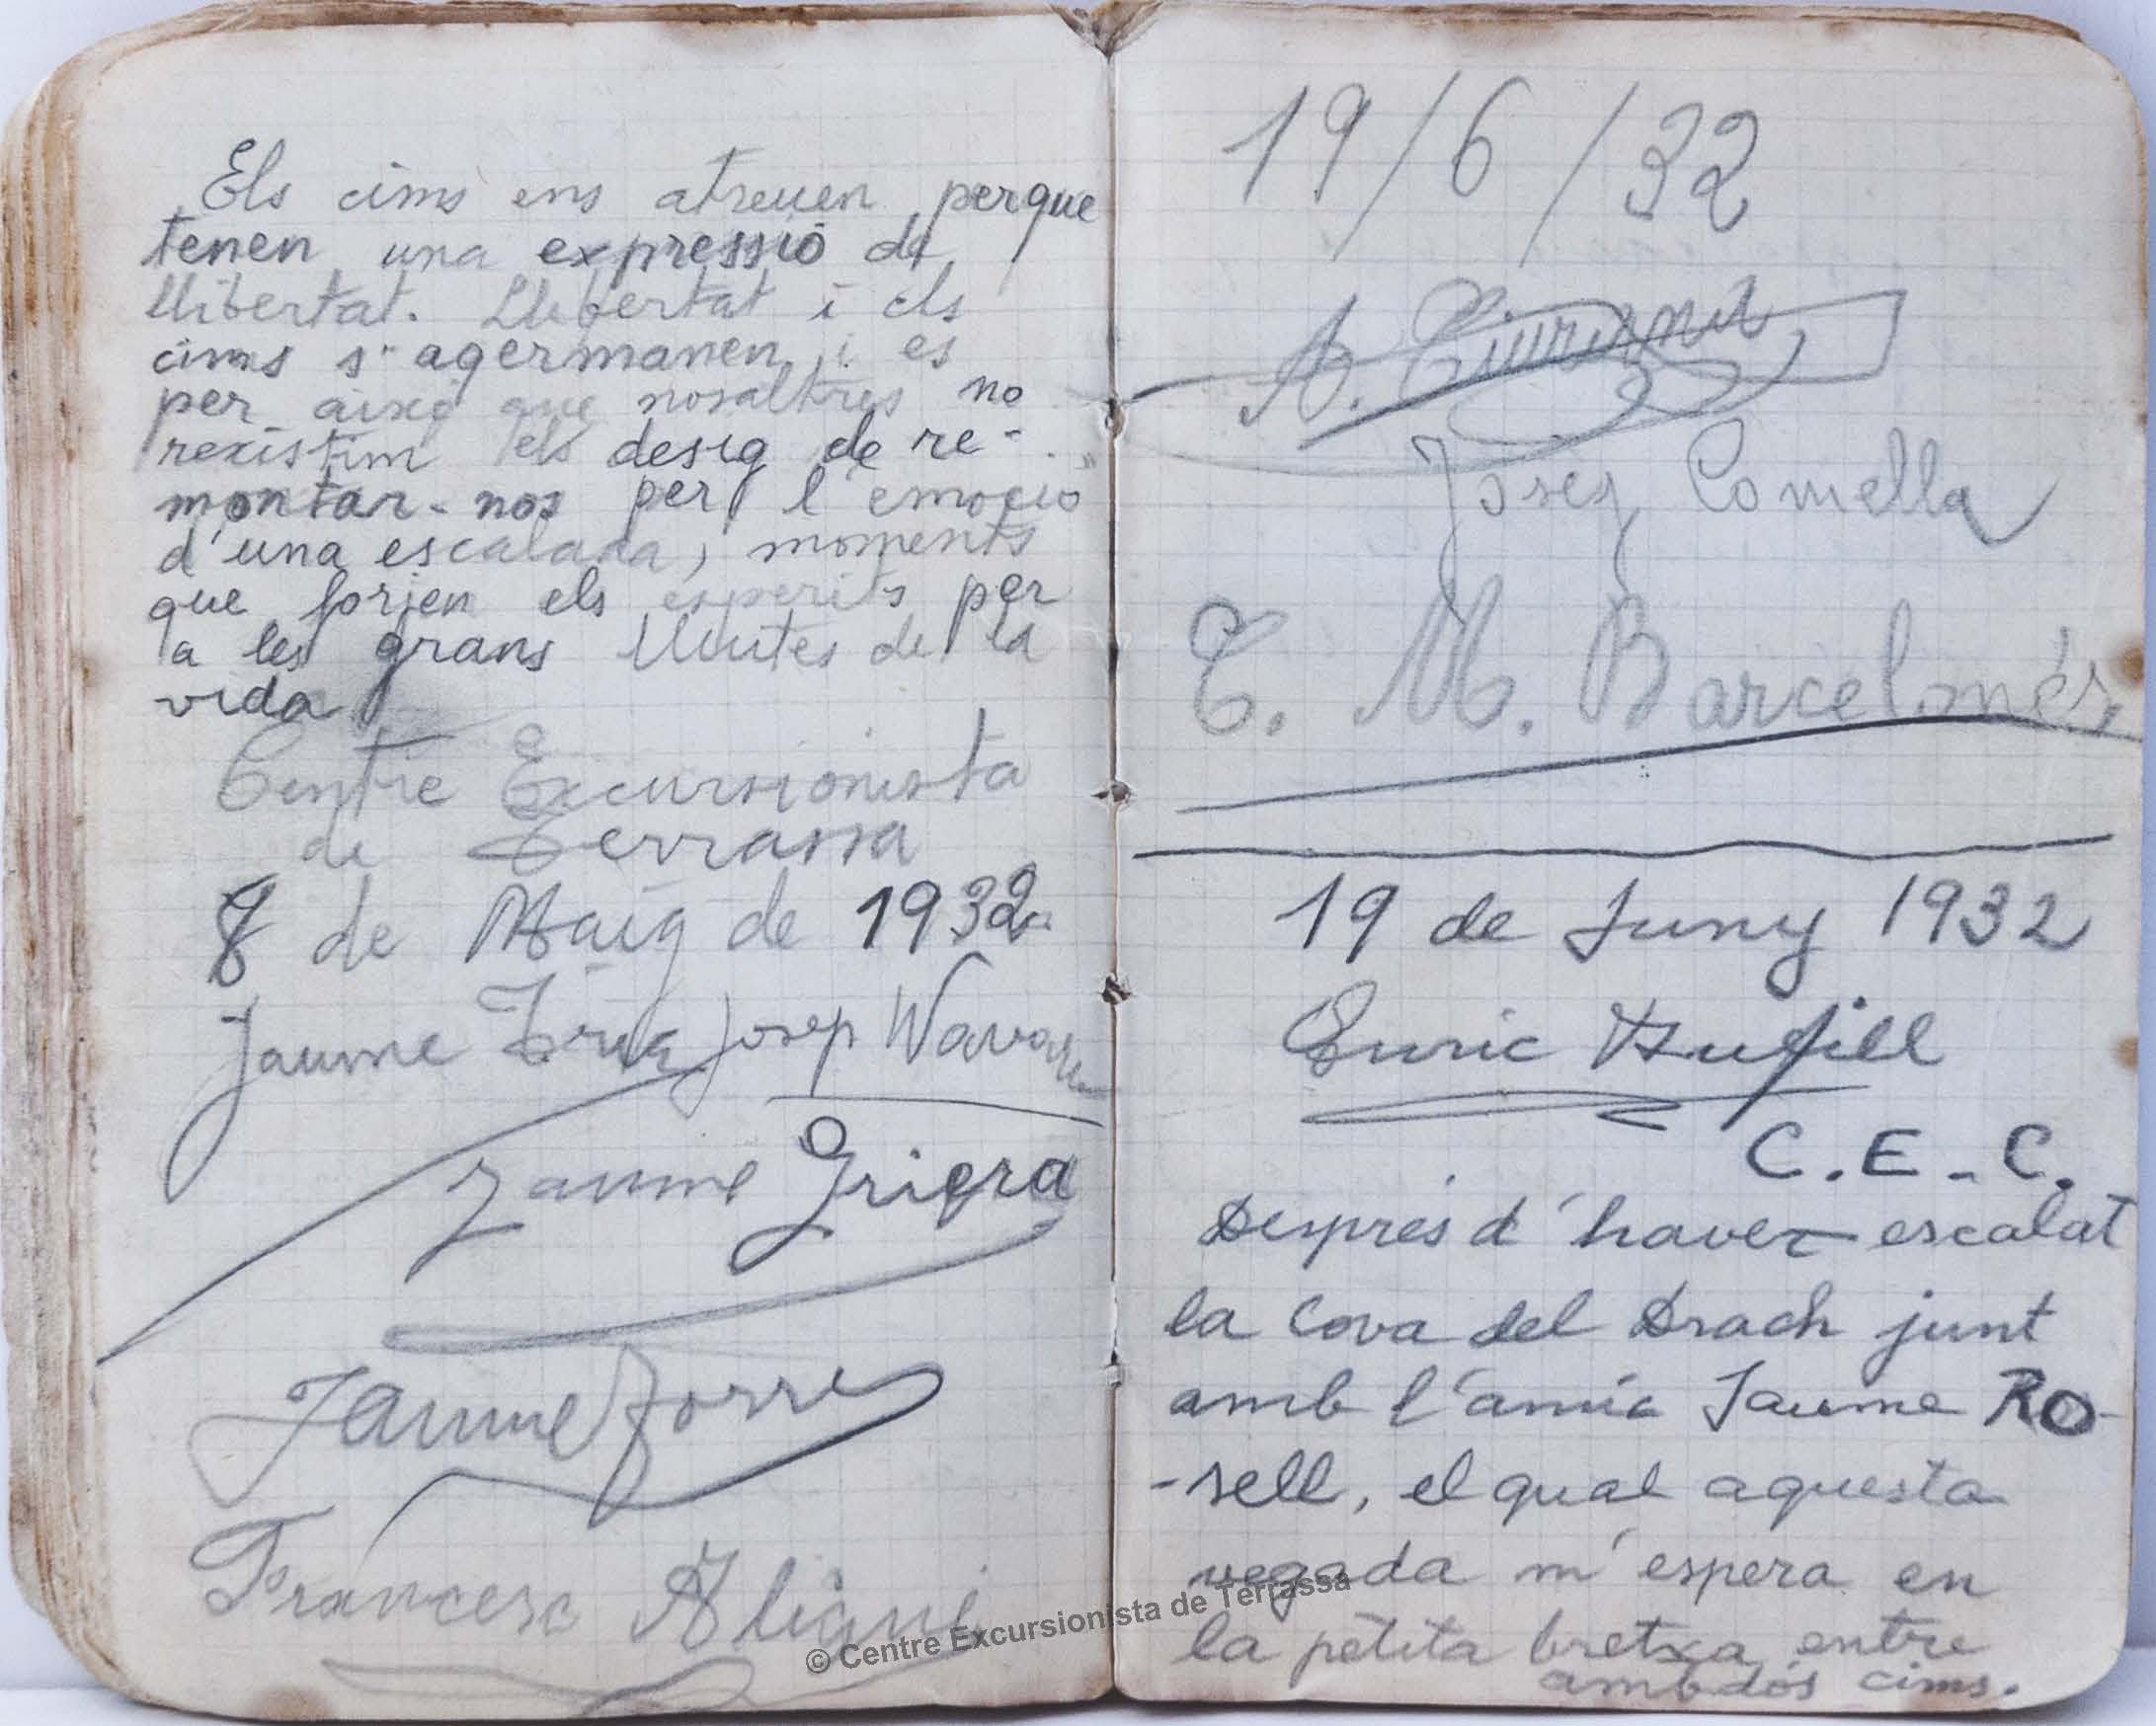 Els cims ens atreuen perque
tenen una expressió de
llibertat. Llibertat i els
cims s'agermanen, i es
per aixo que nosaltres no
rexistim els desig de re-
montar-nos per l'emocio
d'una escalada, moments
que forjen els esperits per
a les grans lluites de la
vida
Centre Excursionista
de Terrassa
8 de Maig de 1932.
Jaume Josep Navarro
Jaume Griera
Jaume Torres
Francesc
19/6/32
A.
Josep Comella
C. M. Barcelonés
19 de Juny 1932
Enric Bufill
C.E.C.
Després d'haver escalat
la cova del Drach junt
amb l'amic Jaume Ro-
-sell, el qual aquesta
vegada m'espera en
la petita bretxa entre
ambdós cims.
© Centre Excursionista de Terrassa